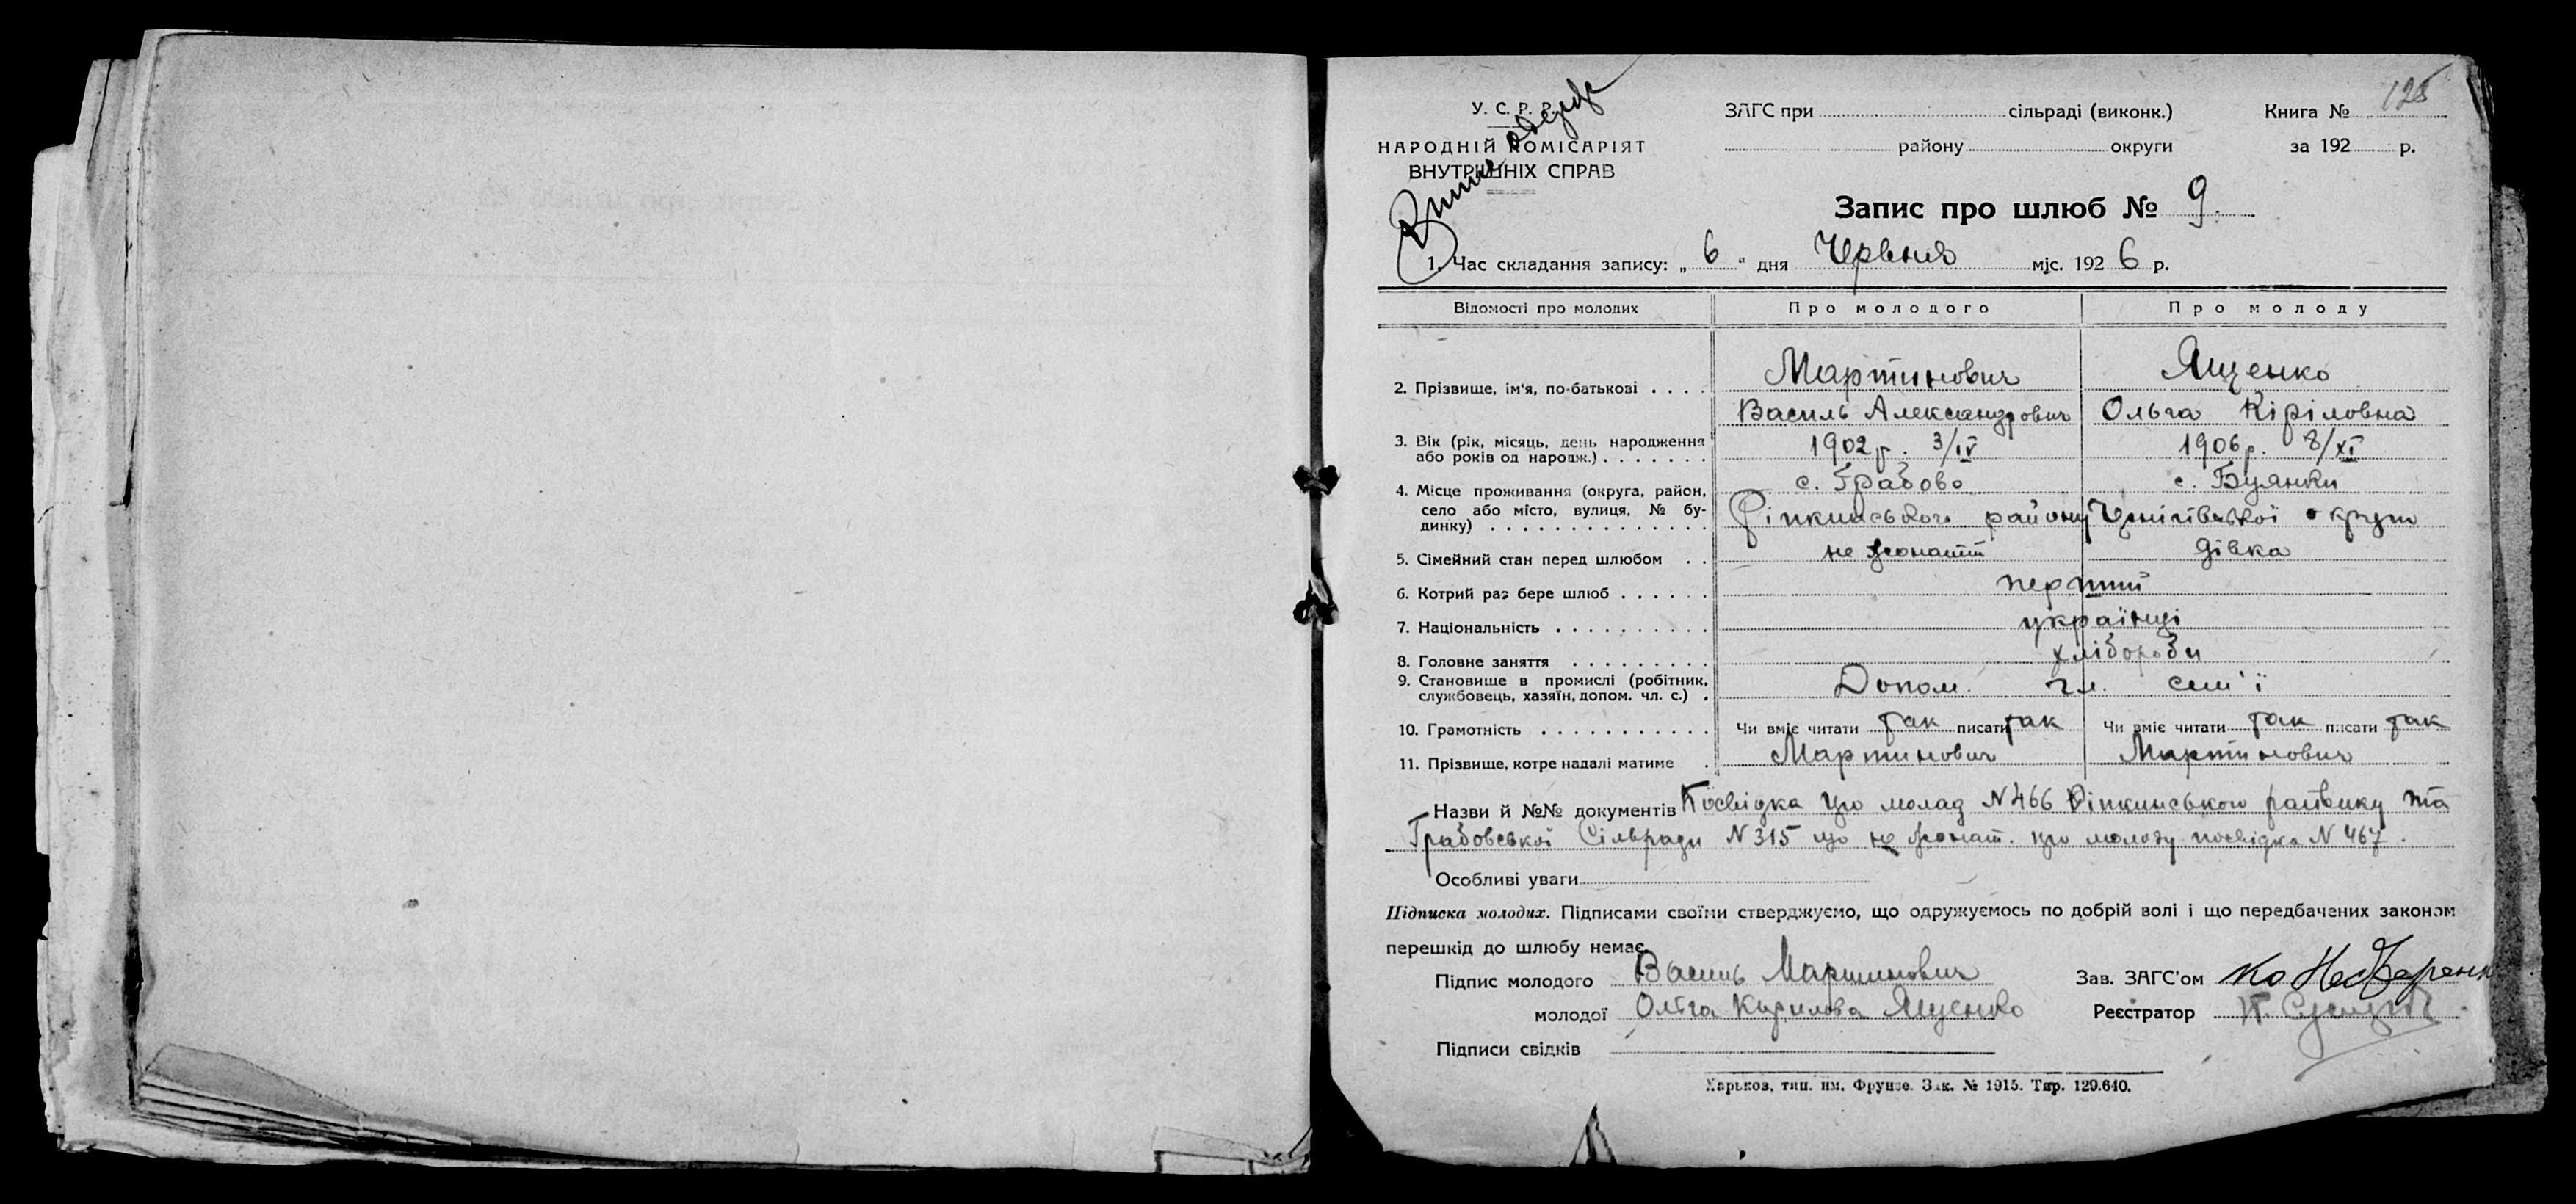 128
У. С. Р. Р.
НАРОДНІЙ КОМІСАРІЯТ
ВНУТРІШНІХ СПРАВ
ЗАГС при сільраді (виконк.)
району округи
Книга №
за 192 р.
Запис про шлюб № 9.
1. Час складання запису: „ 6 “ дня Червня міс. 1926 р.
Відомості про молодих Про молодого Про молоду
2. Прізвище, ім'я, по-батькові . . . . Мартинович Ященко
Василь Александрович Ольга Кіріловна
3. Вік (рік, місяць, день народження
або років од народж.) . . . . . . . 1902 р. 3/IV 1906 р. 8/XI
4. Місце проживання (округа, район, с. Грабово с. Буянки
село або місто, вулиця, № бу-
динку) . . . . . . . . . . . . . . Ріпкинського району Чернігівської округи
5. Сімейний стан перед шлюбом . . не жонатт дівка
6. Котрий раз бере шлюб . . . . . . перший
7. Національність . . . . . . . . . . українці
8. Головне заняття . . . . . . . . . хлібороби
9. Становище в промислі (робітник,
службовець, хазяїн, допом. чл. с.) . Допом. чл. сем'ї
10. Грамотність . . . . . . . . . . . Чи вміє читати так писати так Чи вміє читати так писати так
11. Прізвище, котре надалі матиме . Мартинович Мартинович
Назви й №№ документів Посвідка про молод N 466 Ріпкинського райвику та
Грабовської Сільради N 315 що не жонат. про молоду посвідка N 467.
Особливі уваги
Підписка молодих. Підписами своїми стверджуємо, що одружуємось по добрій волі і що передбачених законом
перешкід до шлюбу немає.
Підпис молодого Василь Мартинович Зав. ЗАГС'ом
молодої Ольга Кирилова Ященко Реєстратор
Підписи свідків
Харьков, тип. им. Фрунзе. Зак. № 1915. Тир. 129.640.